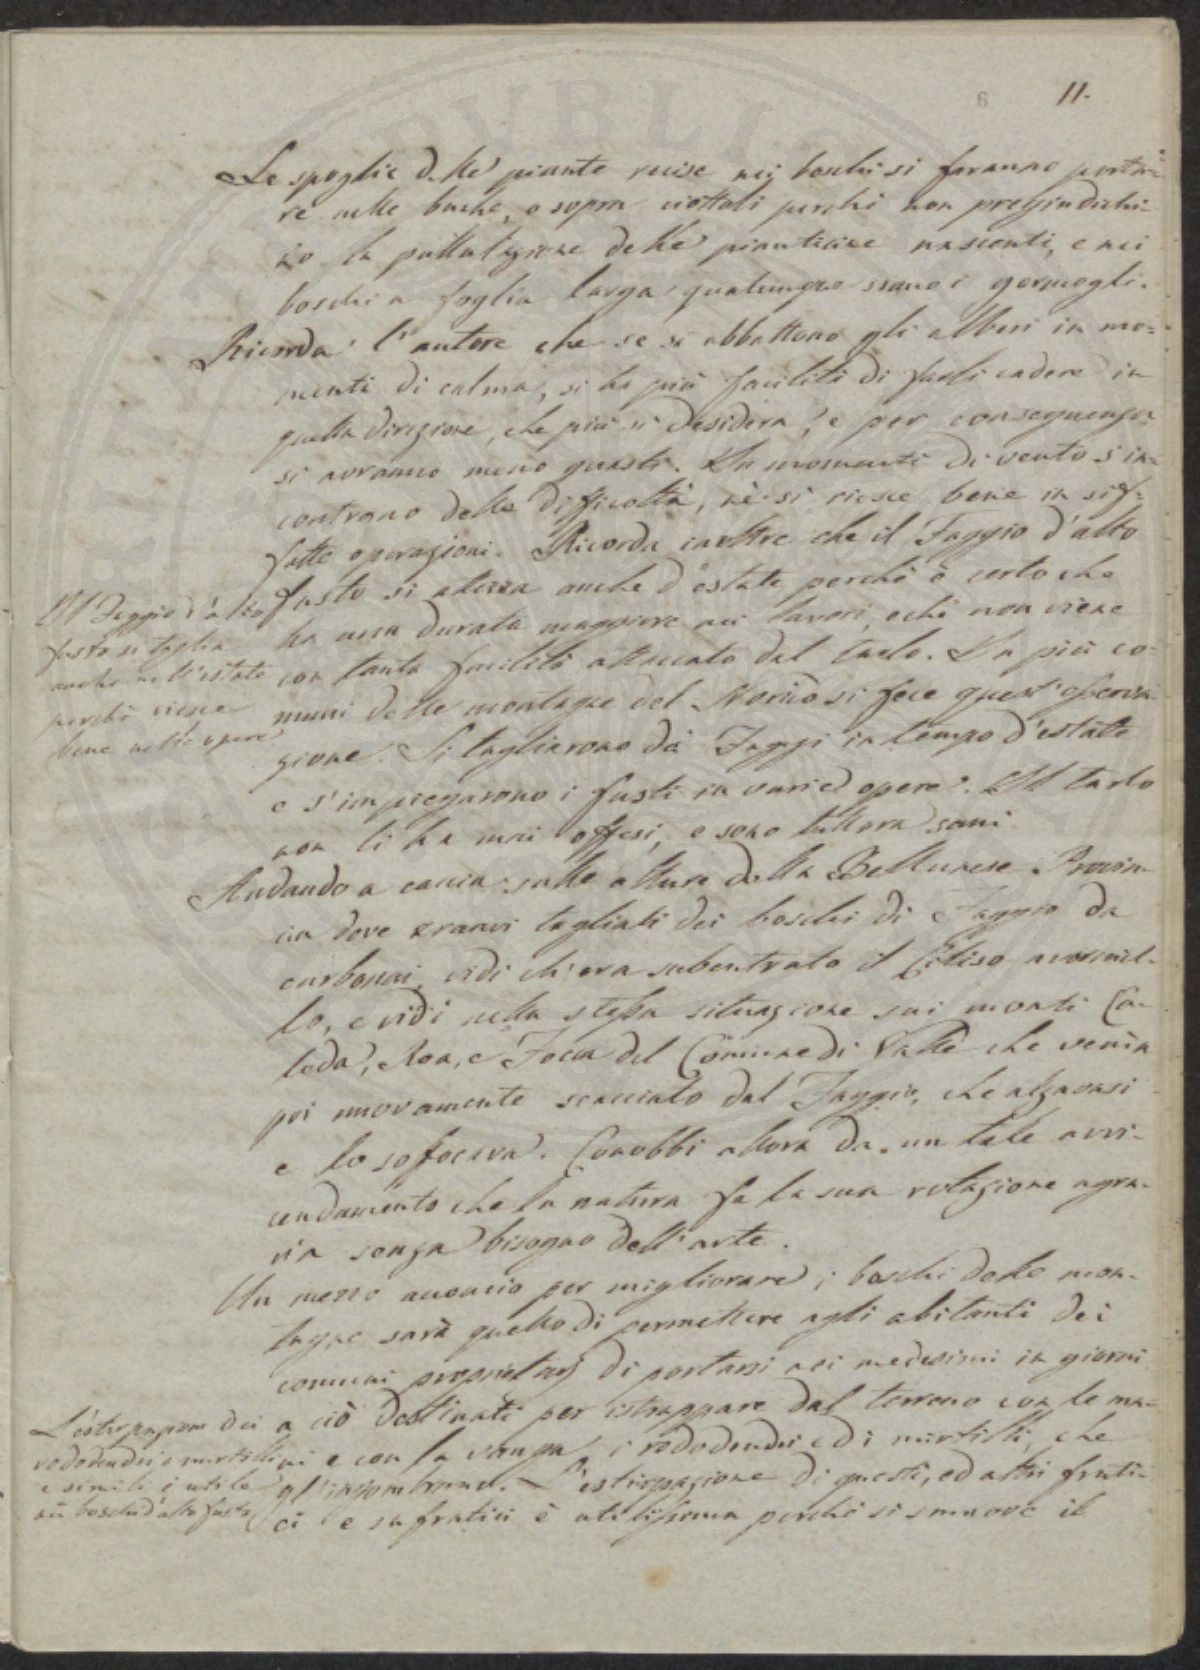 6 11.
Le spoglie delle piante recise nei boschi si faranno porta-
re nelle buche, o sopra ciottoli perchè non pregiudichi-
no la pullulazione delle pianticine nascenti, e nei
boschi a foglia larga qualunque siano i germogli.
Ricorda l'autore che se si abbattono gli alberi in mo-
menti di calma, si ha più facilità di farli cadere in
quella direzione, che più si desidera, e per conseguenza
si avranno meno guasti. In momenti di vento s'in-
contrano delle difficoltà, nè si riesce bene in sif-
fatte operazioni. Ricorda inoltre che il Faggio d'alto
fusto si atterra anche d'estate perchè è certo che
ha una durata maggiore nei lavori, e chi non viene
con tanta facilità attaccato dal tarlo. In più co-
muni delle montagne del Norico si fece quest'osserva-
zione. Si tagliarono dei Faggi in tempo d'estate
e s'impiegarono i fusti in varie opere. Il tarlo
non li ha mai offesi, e sono tuttora sani
Il Faggio d'alto
fusto si taglia
anche nell'estate
perchè riesce
bene nelle opere
Andando a caccia sulle alture della Bellunese Provin-
cia dove eranvi tagliati dei boschi di Faggio da
carbonai, vidi ch'era subentrato il Citiso avornel-
lo, e vidi nella stessa situazione sui monti Ca-
leda, Roa, e Foca del Comune di Valle che venìa
poi nuovamente scacciato dal Faggio, che alzavasi
e lo soffocava. Conobbi allora da un tale avvi-
cendamento che la natura fa la sua rotazione agra-
ria senza bisogno dell'arte.
Un mezzo acconcio per migliorare i boschi delle mon-
tagne sarà quello di permettere agli abitanti dei
comuni proprietarj di portarsi nei medesimi in giorni
a ciò destinati per istrappare dal terreno con le ma-
ni e con la vanga i rododendri ed i mirtilli, che
gl'ingombrano. L'estirpazione di questi, ed altri fruti-
ci e sufrutici è utilissima perchè si smuove il
L'estirpazion dei
rododendri e mirtilli
e simili è utile
nei boschi d'alto fusto